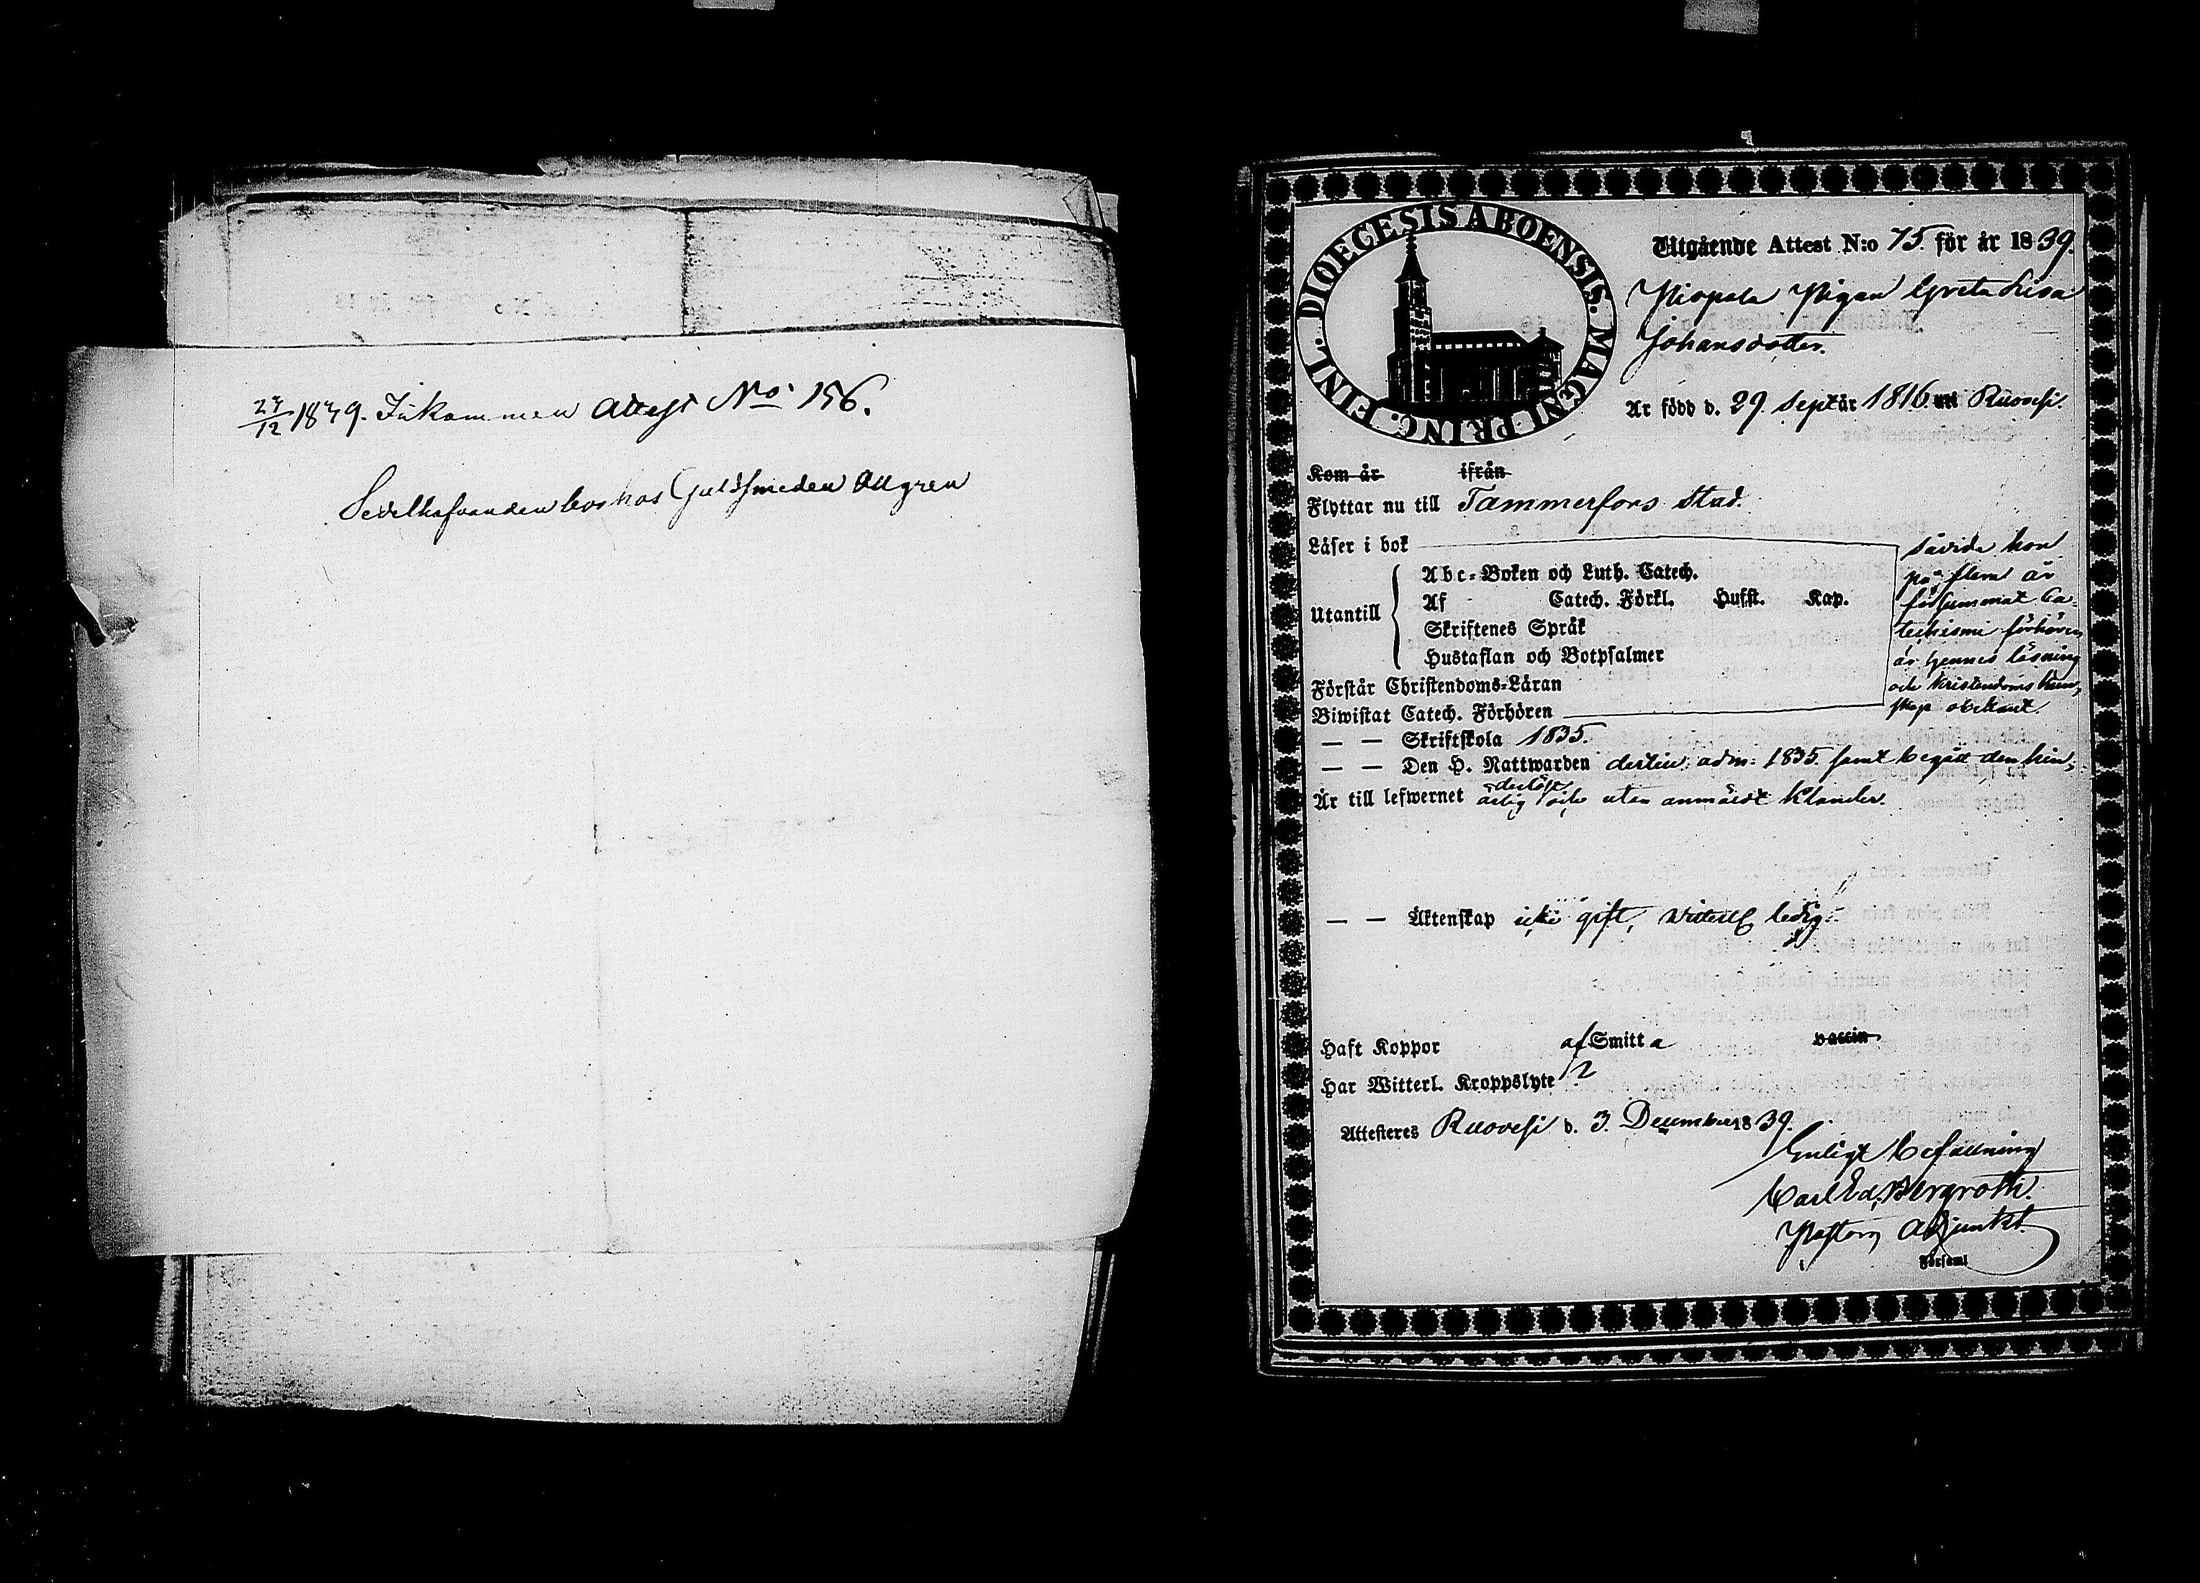 27/12 1839. Inkommen Attest No 156.
Sedelhafvanden bor hos Guldsmeden Allgren
DIOECESIS ABOENSIS. MAGNI PRINC. FINL.
Utgående Attest N:o 75 för år 1839.
Pigan Greta Lisa
Johansdotter.
Är född d. 29 Sept år 1816 uti Ruovesi.
Kom år ifrån
Flyttar nu till Tammerfors Stad.
Läser i bok
Utantill
Abc-Boken och Luth. Catech.
Af Catech. Förkl. Hufst. Kap.
Skriftenes Språk
Hustaflan och Botpsalmer
Förstår Christendoms-Läran
Biwistat Catech. Förhören
såvida hon
på flera år
försummat Ca-
techismi förhören
är hennes läsning
och Kristendoms kun-
skap obekant.
— — Skriftskola 1835.
— — Den H. Nattwarden dertill adm: 1835 samt begått den hin-
derlöst
Är till lefwernet ärlig och utan anmärkt klander.
— — Äktenskap icke gift, ledig.
Haft Koppor af Smitta vaccin
Har Witterl. Kroppslyte
Attesteres Ruovesi d. 3 December 1839.
Enligt befallning
Carl Ed. Bergroth.
Pastors Adjunkt.
Församl